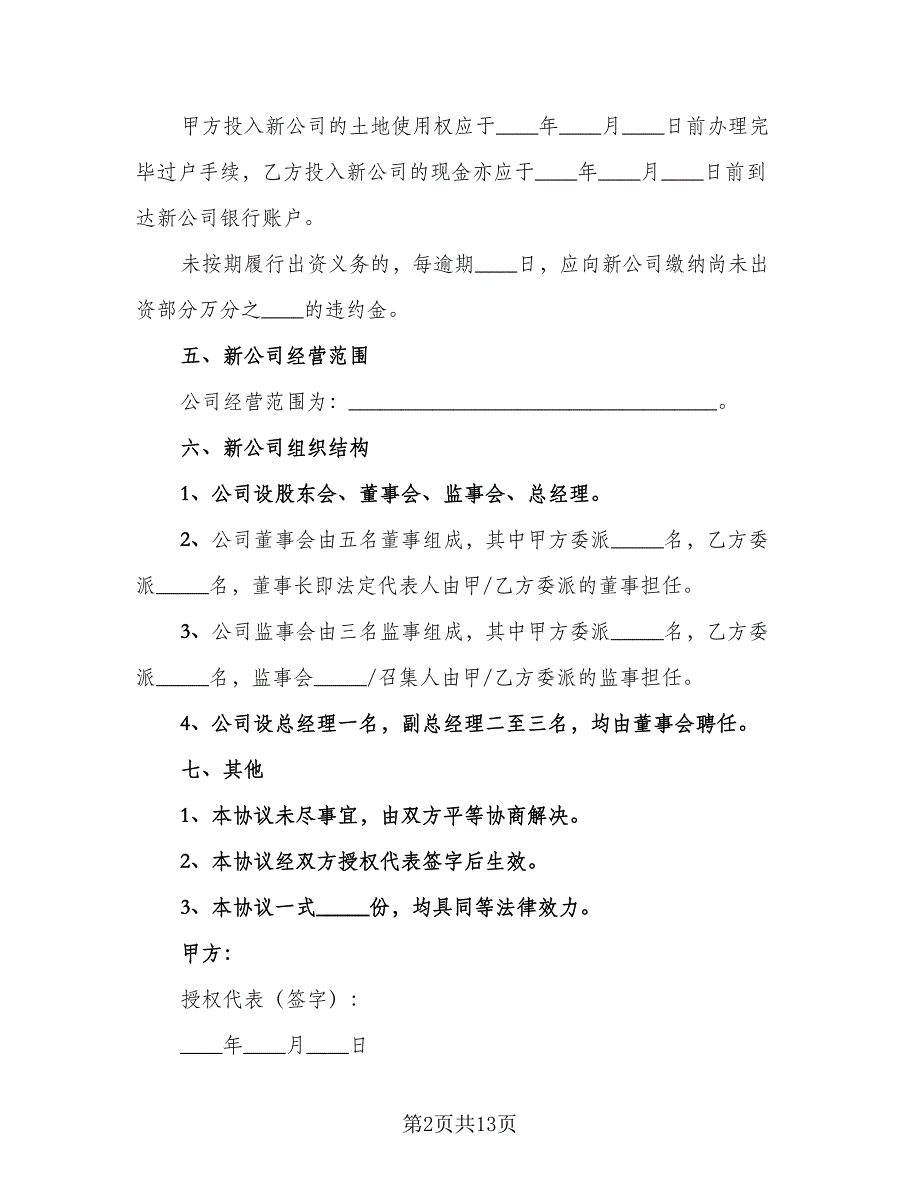 甲方投入新公司的土地使用权应于____年____月____日前办理完
毕过户手续，乙方投入新公司的现金亦应于____年____月____日前到
达新公司银行账户。
未按期履行出资义务的，每逾期____日，应向新公司缴纳尚未出
资部分万分之____的违约金。
五、新公司经营范围
公司经营范围为：___________________________________。
六、新公司组织结构
1、公司设股东会、董事会、监事会、总经理。
2、公司董事会由五名董事组成，其中甲方委派_____名，乙方委
派_____名，董事长即法定代表人由甲/乙方委派的董事担任。
3、公司监事会由三名监事组成，其中甲方委派_____名，乙方委
派_____名，监事会_____/召集人由甲/乙方委派的监事担任。
4、公司设总经理一名，副总经理二至三名，均由董事会聘任。
七、其他
1、本协议未尽事宜，由双方平等协商解决。
2、本协议经双方授权代表签字后生效。
3、本协议一式_____份，均具同等法律效力。
甲方：
授权代表（签字）：
____年____月____日
第2页共13页